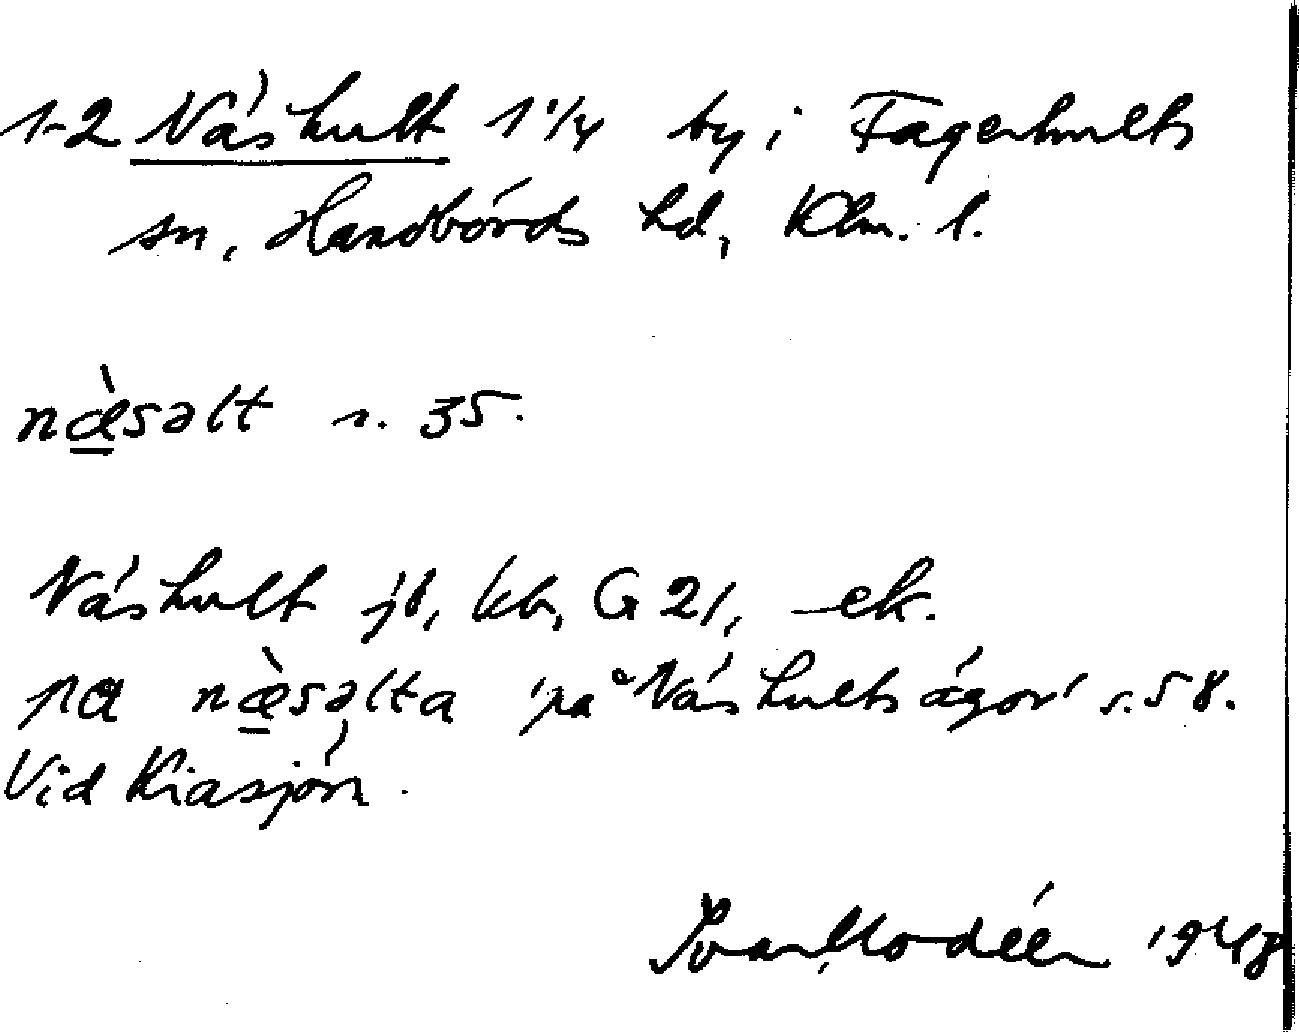 1-2 Näshult 1 1/4 by i Fagerhults
sn, Handbörds hd, Klm. l.
næ̀səlt s. 35.
Näshult jb, kb, G 21, ek.
pa næ̀səlta 'på Näshults ägor' s. 58.
Vid Kiasjön.
Ivar Modéer 1948